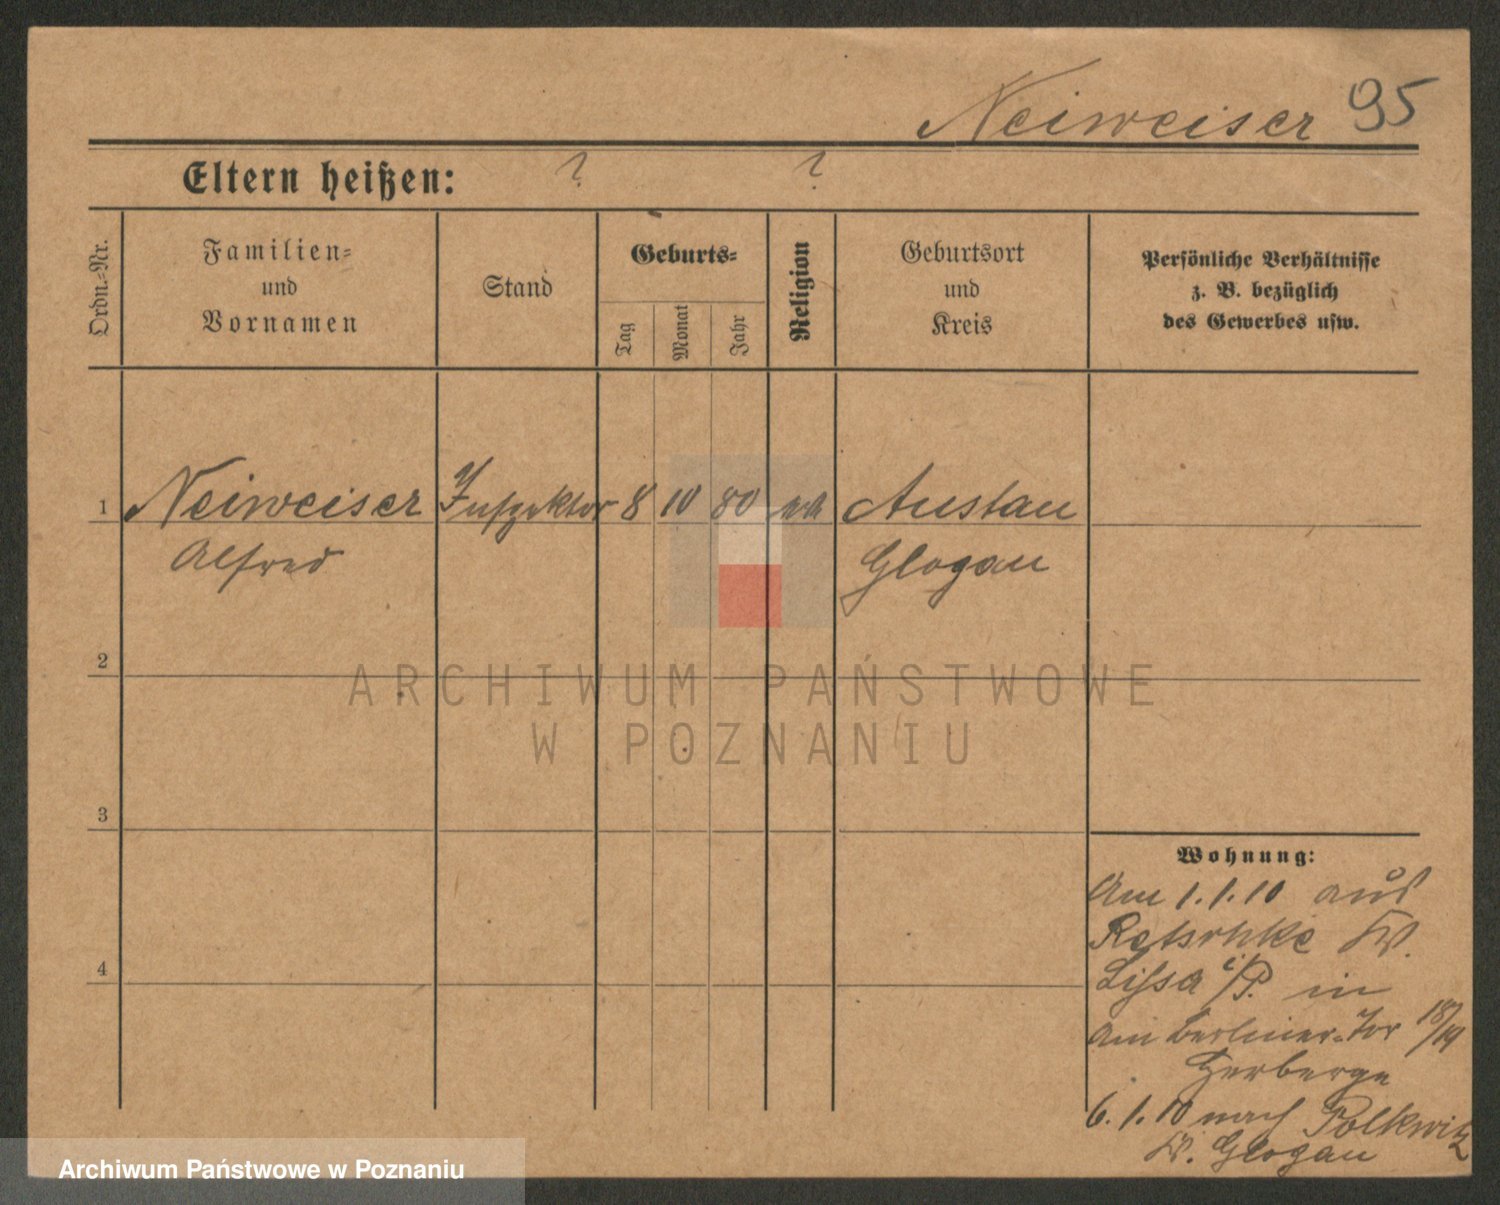 Neiweiser 95
Eltern heißen: ? ?
Ordn.-Nr.
Familien-
und
Vornamen
Stand
Geburts-
Tag
Monat
Jahr
Religion
Geburtsort
und
Kreis
Persönliche Verhältnisse
z. B. bezüglich
des Gewerbes usw.
1 Neiweiser Inspektor 8 10 80 Austau
Alfred Glogau
2
3
4
Wohnung:
Am 1.1.10 aus
Retschke Kr.
Lissa i/P. in
Am Berliner-Tor 18/19
Herberge
6.1.10 nach Polkwitz
Kr. Glogau
ARCHIWUM PAŃSTWOWE
W POZNANIU
Archiwum Państwowe w Poznaniu